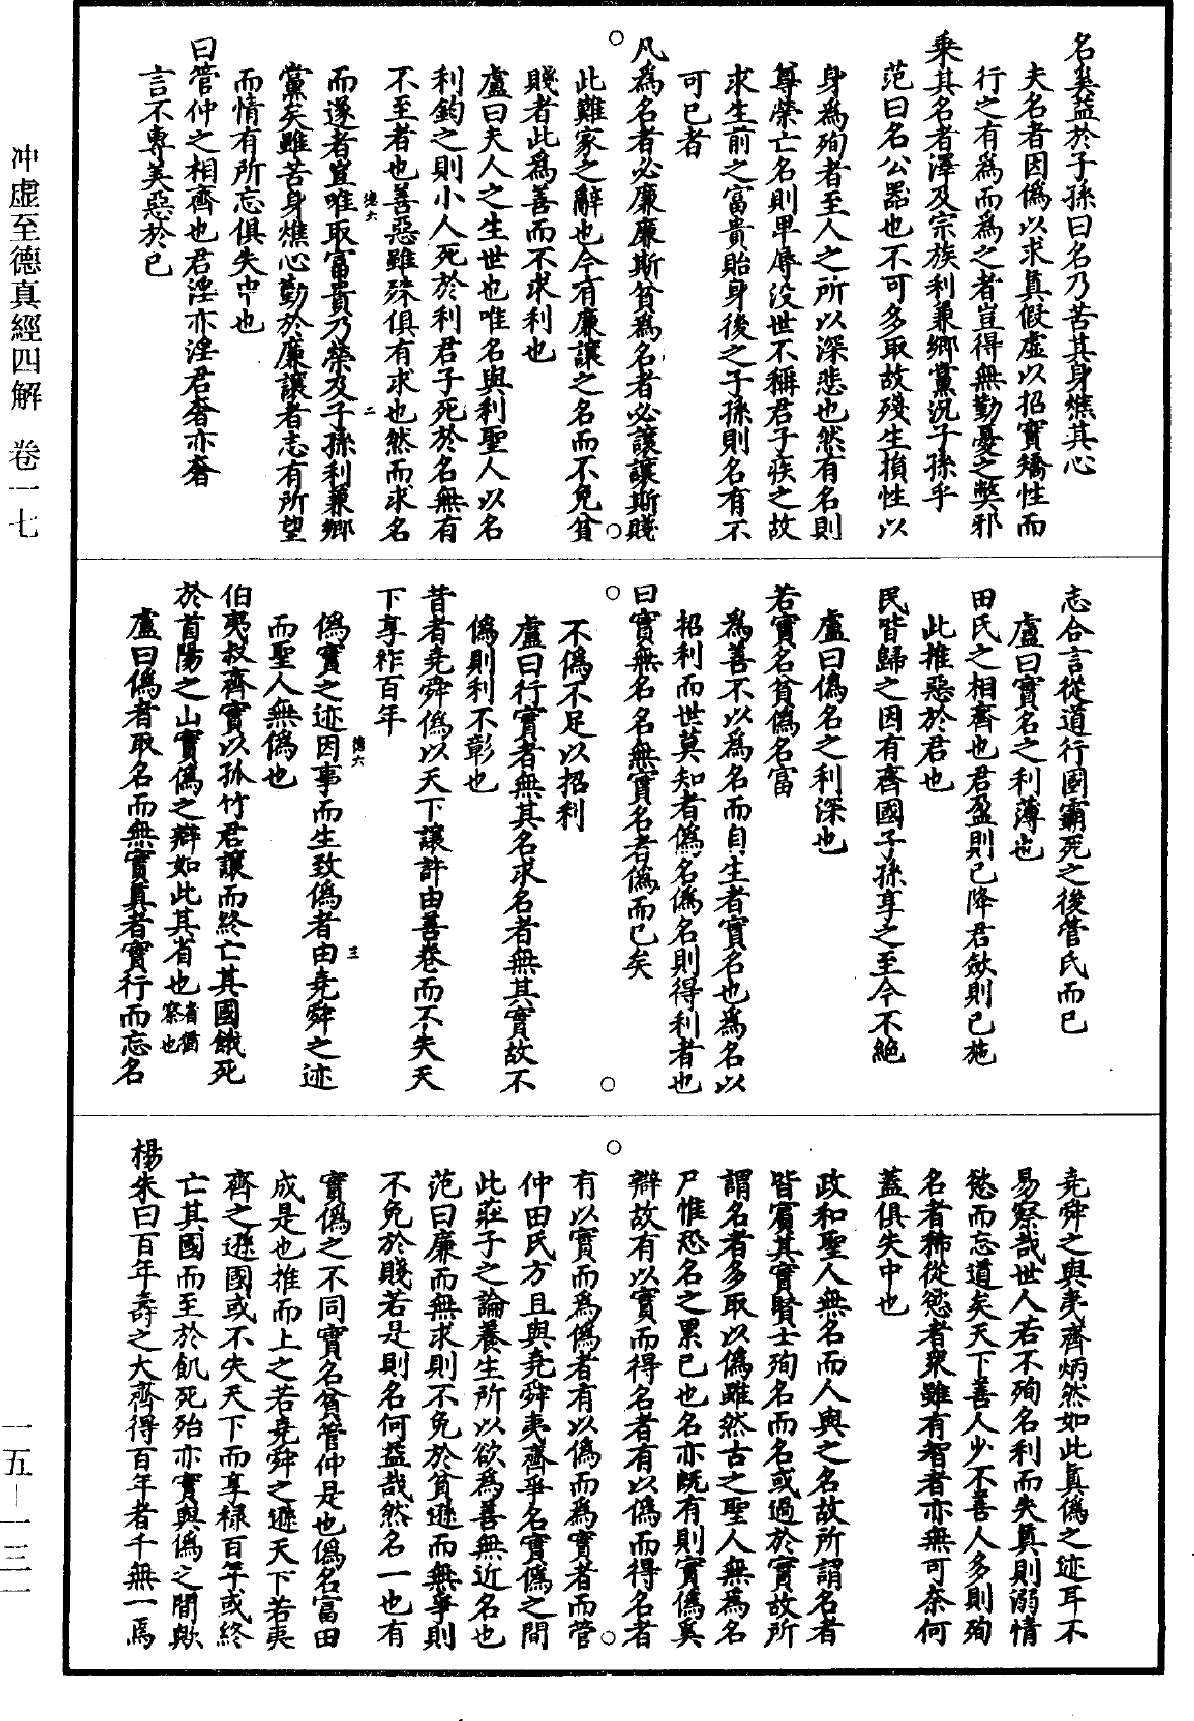 冲虛至德真經四解　卷一七
一五—一三一
名奚益於子孫曰名乃苦其身燋其心
夫名者因偽以求真假虛以招實矯性而
行之有為而為之者豈得無勤憂之弊邪
乘其名者澤及宗族利兼鄉黨況子孫乎
范曰名公器也不可多取故殘生損性以
身為殉者至人之所以深悲也然有名則
尊榮亡名則卑辱沒世不稱君子疾之故
求生前之富貴貽身後之子孫則名有不
可已者
凡為名者必廉廉斯貧為名者必讓讓斯賤
此難家之辭也今有廉讓之名而不免貧
賤者此為善而不求利也
盧曰夫人之生世也唯名與利聖人以名
利鈞之則小人死於利君子死於名無有
不至者也善惡雖殊俱有求也然而求名
德六　二
而遂者豈唯取富貴乃榮及子孫利兼鄉
黨矣雖苦身燋心勤於廉讓者志有所望
而情有所忘俱失中也
曰管仲之相齊也君淫亦淫君奢亦奢
言不專美惡於已
志合言從道行國霸死之後管氏而已
盧曰實名之利薄也
田氏之相齊也君盈則已降君斂則已施
此推惡於君也
民皆歸之因有齊國子孫享之至今不絕
盧曰偽名之利深也
若實名貧偽名富
為善不以為名而自生者實名也為名以
招利而世莫知者偽名偽名則得利者也
曰實無名名無實名者偽而已矣
不偽不足以招利
盧曰行實者無其名求名者無其實故不
偽則利不彰也
昔者堯舜偽以天下讓許由善卷而不失天
下享祚百年
德六　三
偽實之迹因事而生致偽者由堯舜之迹
而聖人無偽也
伯夷叔齊實以孤竹君讓而終亡其國餓死
於首陽之山實偽之辯如此其省也省猶察也
盧曰偽者取名而無實真者實行而忘名
堯舜之與夷齊炳然如此真偽之迹耳不
易察哉世人若不殉名利而失真則溺情
慾而忘道矣天下善人少不善人多則殉
名者稀從慾者眾雖有智者亦無可奈何
蓋俱失中也
政和聖人無名而人與之名故所謂名者
皆賓其實賢士殉名而名或過於實故所
謂名者多取以偽雖然古之聖人無為名
尸惟恐名之累已也名亦既有則實偽奚
辯故有以實而得名者有以偽而得名者
有以實而為偽者有以偽而為實者而管
仲田氏方且與堯舜夷齊爭名實偽之間
此莊子之論養生所以欲為善無近名也
范曰廉而無求則不免於貧遜而無爭則
不免於賤若是則名何益哉然名一也有
實偽之不同實名貧管仲是也偽名富田
成是也推而上之若堯舜之遜天下若夷
齊之遜國或不失天下而享祿百年或終
亡其國而至於飢死殆亦實與偽之間歟
楊朱曰百年壽之大齊得百年者千無一焉